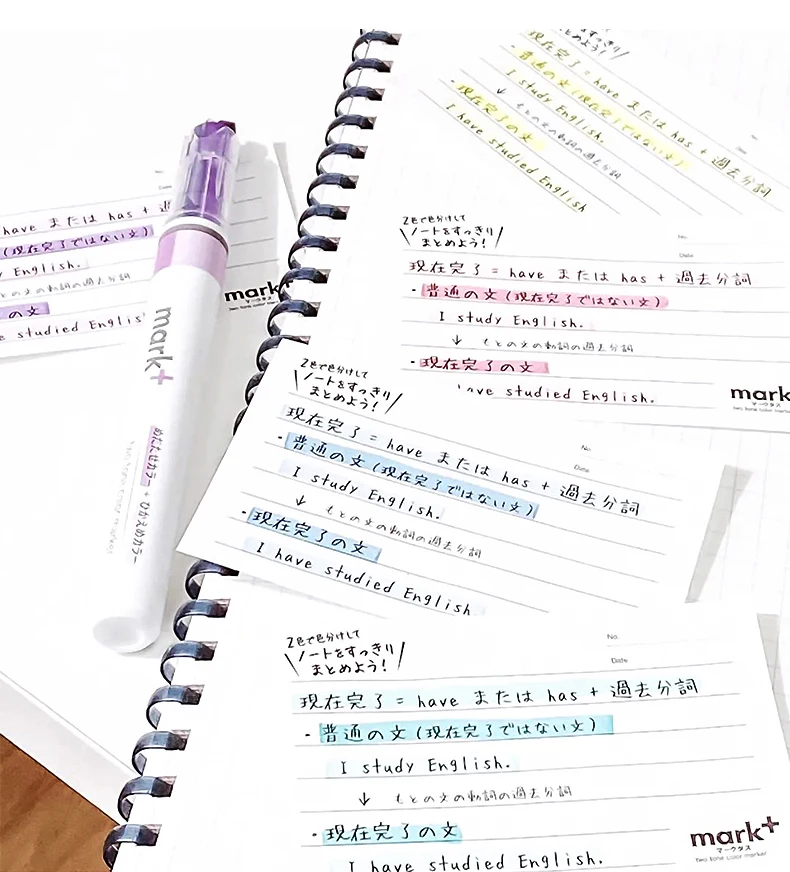 have または has + 過
(現在完了ではない文)
English.
との文の動詞の過去分詞
の文
e studied Englis
mark+
マークタス
mark+
めだたせカラー + ひかえめカラー
2色で色分けして
ノートをすっきり
まとめよう!
現在完了 = have または has + 過去分詞
・普通の文(現在完了ではない文)
I study English.
↓ もとの文の動詞の過去分詞
・現在完了の文
I have studied English
2色で色分けして
ノートをすっきり
まとめよう!
No.
Date
現在完了 = have または has + 過去分詞
・普通の文(現在完了ではない文)
I study English.
↓ もとの文の動詞の過去分詞
・現在完了の文
have studied English.
mark
マークタス
two tone color marker
2色で色分けして
ノートをすっきり
まとめよう!
No.
Date
現在完了 = have または has + 過去分詞
・普通の文(現在完了ではない文)
I study English.
↓ もとの文の動詞の過去分詞
・現在完了の文
I have studied English
2色で色分けして
ノートをすっきり
まとめよう!
No.
Date
現在完了 = have または has + 過去分詞
・普通の文(現在完了ではない文)
I study English.
↓ もとの文の動詞の過去分詞
・現在完了の文
I have studied English.
mark+
マークタス
two tone color marker